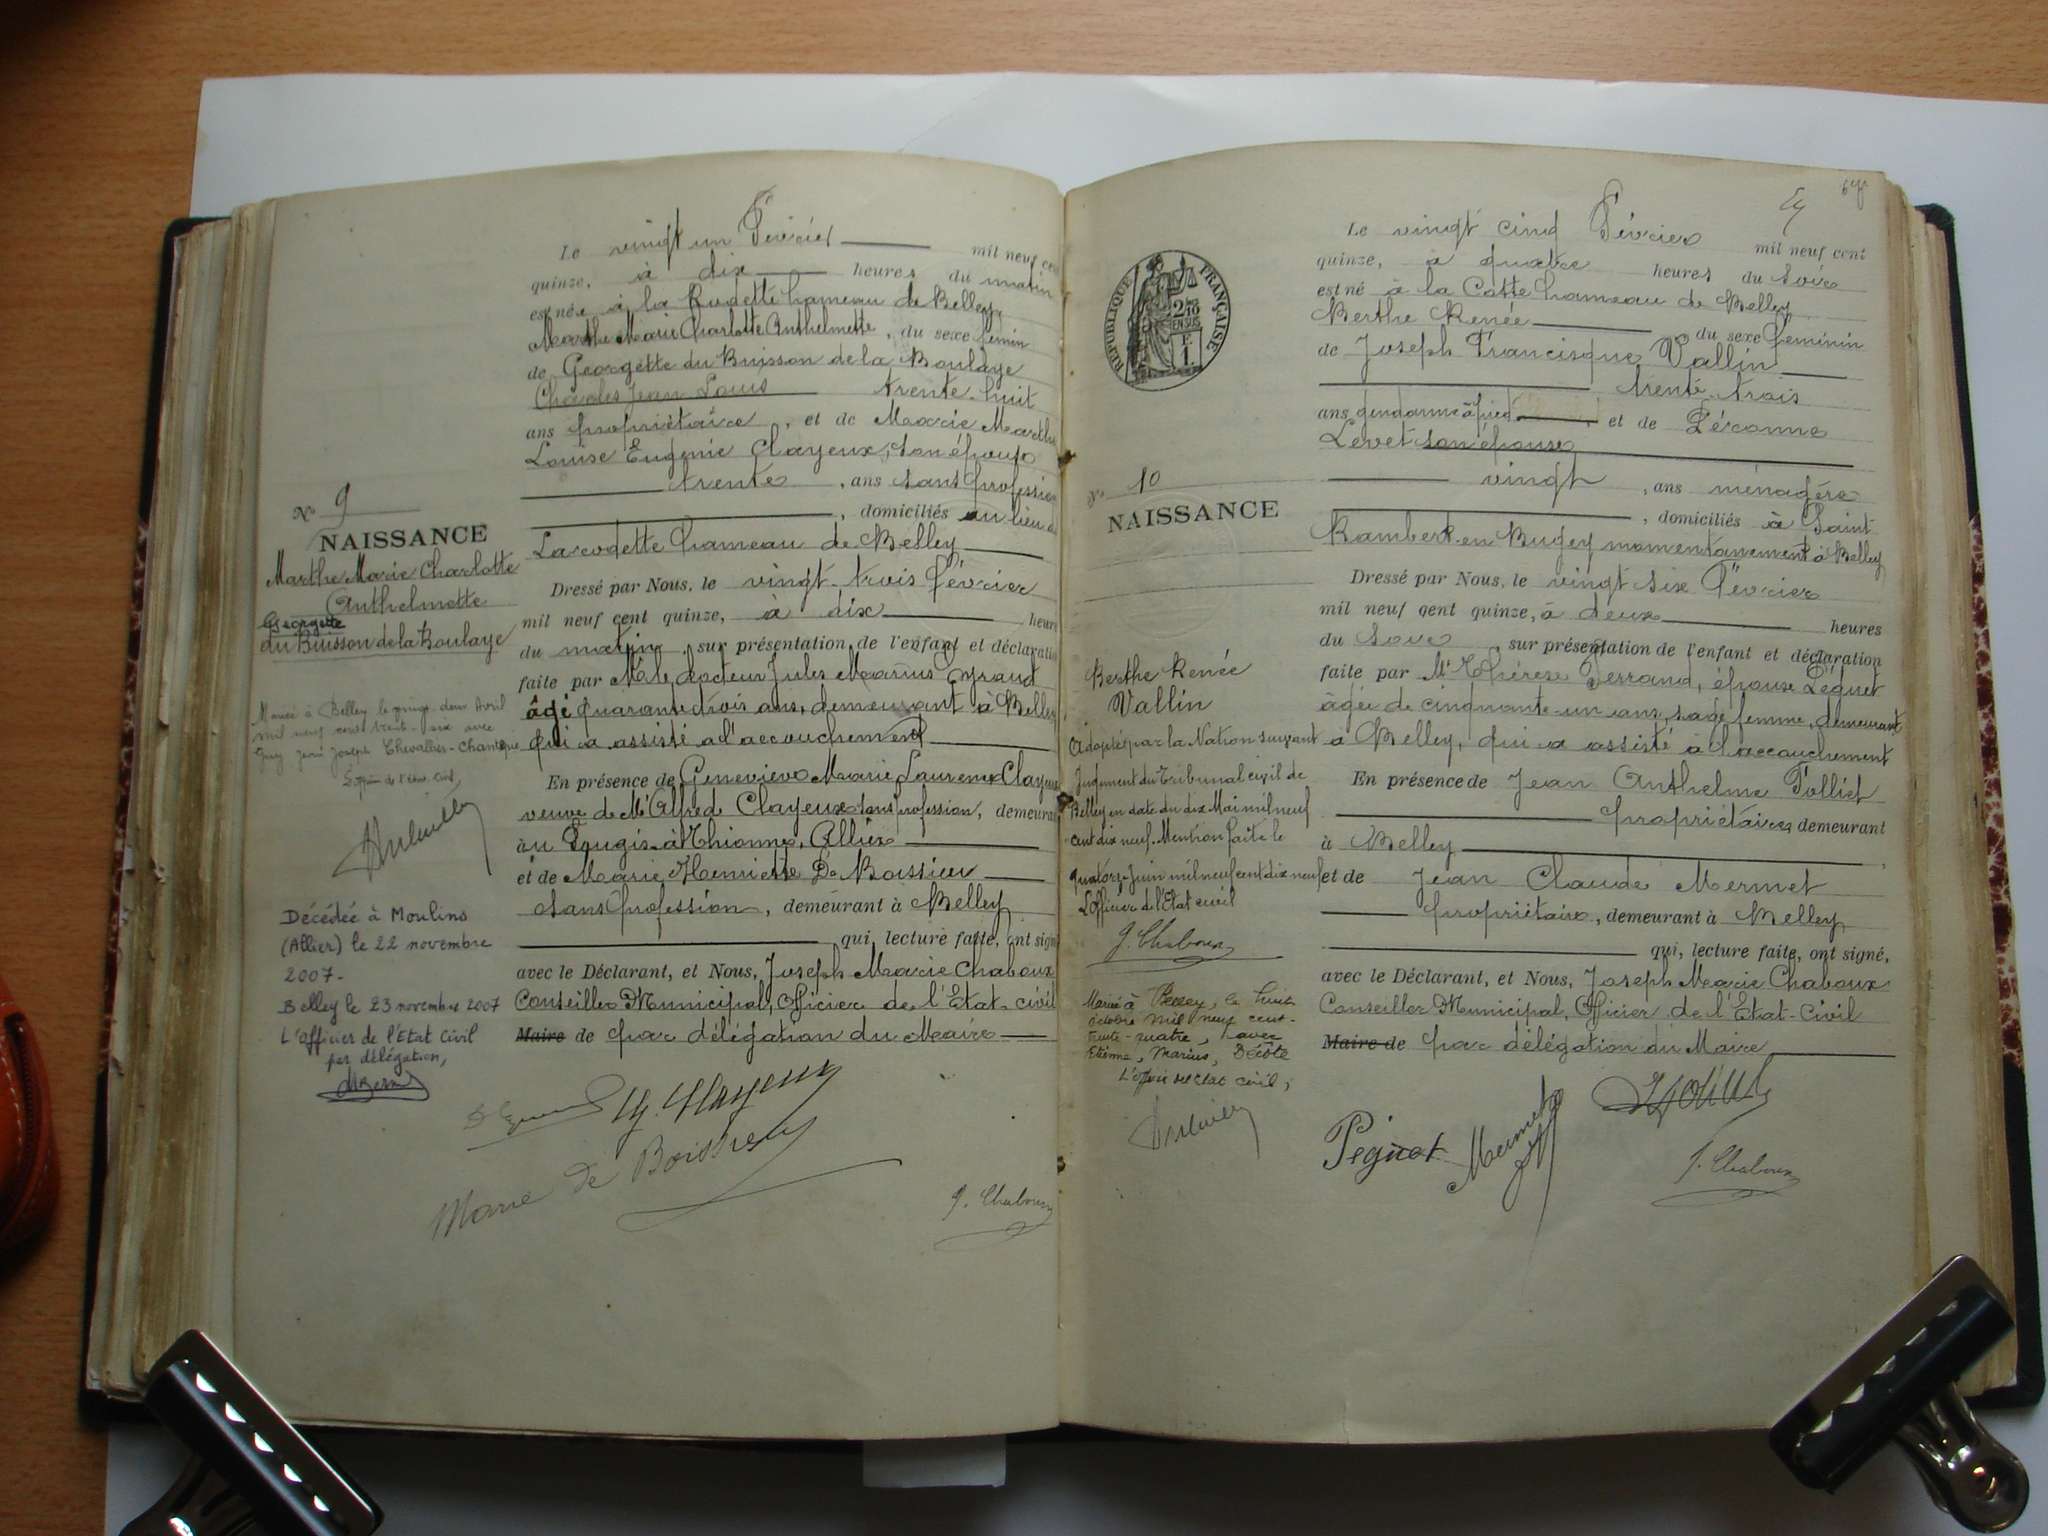 Le vingt un Février mil neuf cent
quinze, à dix heures du matin
est née à la Rodette hameau de Belley
Marthe Marie Charlotte Anthelmette, du sexe fémin
de Georgette du Buisson de la Boulaye
Charles Jean Louis trente-huit
ans propriétaire, et de Marie Marthe
Louise Eugénie Clayeux, son épouse
trente, ans sans profession
, domiciliés au lieu de
La rodette hameau de Belley
Dressé par Nous, le vingt-trois Février
mil neuf cent quinze, à dix heures
du matin, sur présentation de l'enfant et déclaration
faite par M. le docteur Jules Marius Eyraud
âgé quarante trois ans, demeurant à Belley
qui a assisté a l'accouchement
En présence de Geneviève Marie Laurence Clayeux
veuve de Mr Alfred Clayeux sans profession, demeurant
au à Thionne, Allier
et de Marie Henriette De Boissieu
sans profession, demeurant à Belley
qui, lecture faite, ont signé
avec le Déclarant, et Nous, Joseph Marie Chaboux
Conseiller Municipal, Officier de l'Etat-civil
Maire de par délégation du Maire
Clayeux
Marie de Boissieu
J. Chaboux
N° 9
NAISSANCE
Marthe Marie Charlotte
Anthelmette
Georgette
du Buisson de la Boulaye
Mariée à Belley le vingt deux Avril
mil neuf cent trente-six avec
Guy Jean Joseph Chevallier-Chantepie
L'officier de l'état civil,
Décédée à Moulins
(Allier) le 22 novembre
2007-
Belley le 23 novembre 2007
L'officier de l'Etat Civil
par délégation,
67
REPUBLIQUE FRANÇAISE
2/10
EN SUS
F
1.
Le vingt cinq Février mil neuf cent
quinze, à quatre heures du soir
est né à la Cotte hameau de Belley
Berthe Renée du sexe féminin
de Joseph Francisque Vallin
trente-trois
ans gendarme à pied et de Péronne
Levet son épouse
vingt, ans ménagère
, domiciliés à Saint
Rambert-en-Bugey momentanément à Belley
Dressé par Nous, le vingt six Février
mil neuf cent quinze, à deux heures
du soir, sur présentation de l'enfant et déclaration
faite par Me Thérèse Ferrand, épouse Péguet
âgée de cinquante-un ans, sage femme, demeurant
à Belley, qui a assisté à l'accouchement
En présence de Jean Anthelme Tolliet
propriétaire, demeurant
à Belley
et de Jean Claude Mermet
propriétaire, demeurant à Belley
qui, lecture faite, ont signé,
avec le Déclarant, et Nous, Joseph Marie Chaboux
Conseiller Municipal, Officier de l'Etat-Civil
Maire de par délégation du Maire
Péguet Mermet
J. Chaboux
N° 10
NAISSANCE
Berthe Renée
Vallin
Adoptée par la Nation suivant
Jugement du Tribunal civil de
Belley en date du dix Mai mil neuf
cent dix neuf. Mention faite le
quatorze Juin mil neuf cent dix neuf
L'Officier de l'Etat civil
J. Chaboux
Mariée à Belley, le huit
octobre mil neuf cent-
trente-quatre, avec
Etienne, Marius, Décôte
L'officier de l'Etat civil,